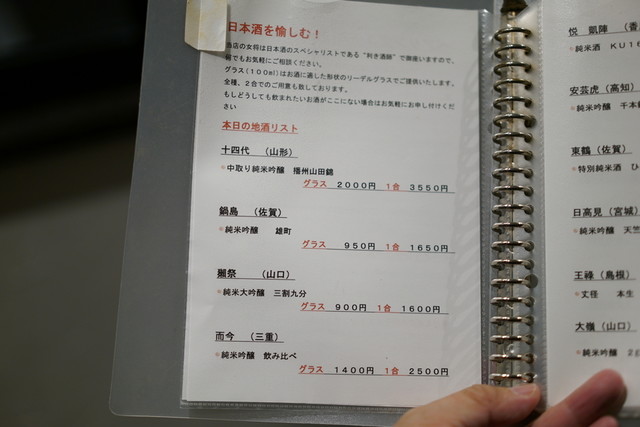 日本酒を愉しむ！
当店の女将は日本酒のスペシャリストである"利き酒師"で御座いますので、
何でもお気軽にご相談ください。
グラス(100ml)はお酒に適した形状のリーデルグラスでご提供いたします。
全種、2合でのご用意も致しております。
もしどうしても飲まれたいお酒がここにない場合はお気軽にお申し付けくだ
さい
本日の地酒リスト
十四代 （山形）
*中取り純米吟醸 播州山田錦
グラス 2000円 1合 3550円
鍋島 （佐賀）
*純米吟醸 雄町
グラス 950円 1合 1650円
獺祭 （山口）
*純米大吟醸 三割九分
グラス 900円 1合 1600円
而今 （三重）
*純米吟醸 飲み比べ
グラス 1400円 1合 2500円
悦 凱陣 （香
*純米酒 KU16
安芸虎（高知）
*純米吟醸 千本
東鶴（佐賀）
*特別純米酒 ひ
日高見（宮城）
*純米吟醸 天竺
王祿（島根）
*丈径 本生
大嶺（山口）
*純米吟醸